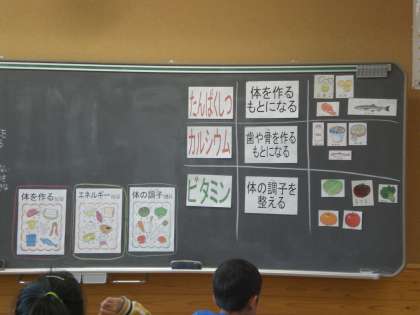 たんぱくしつ
体を作る
もとになる
カルシウム
歯や骨を作る
もとになる
ビタミン
体の調子を
整える
体を作る
エネルギー
体の調子